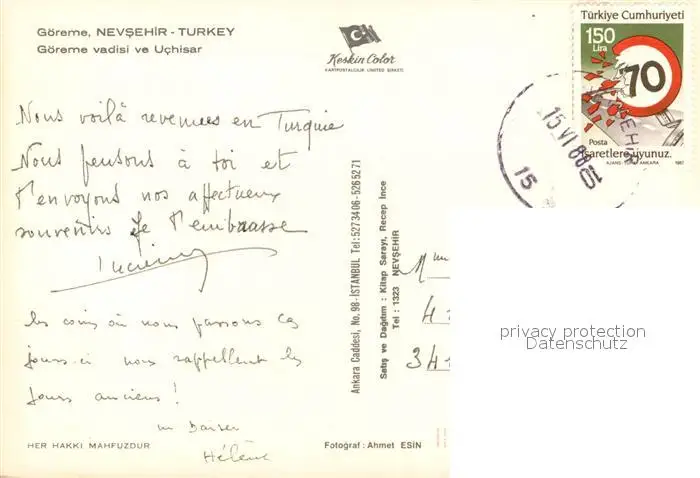 Göreme, NEVŞEHİR - TURKEY
Göreme vadisi ve Uçhisar
Keskin Color
KARTPOSTALCILIK LIMITED ŞİRKETİ
Türkiye Cumhuriyeti
150
Lira
70
Posta
işaretlere uyunuz.
AJANS-TÜRK/ANKARA 1987
NEVŞEHİR
15 VI 88
15
Nous voilà revenues en Turquie
Nous pensons à toi et
t'envoyons nos affectueux
souvenirs Je t'embrasse
Lucienne
les coins où nous passons ces
jours-ci nous rappellent les
jours anciens !
un baiser
Hélène
Ankara Caddesi, No. 98-İSTANBUL Tel: 5273406-5265271
Satış ve Dağıtım : Kitap Sarayı, Recep İnce
Tel : 1323 NEVŞEHİR
Mme
34
privacy protection
Datenschutz
HER HAKKI MAHFUZDUR
Fotoğraf : Ahmet ESİN